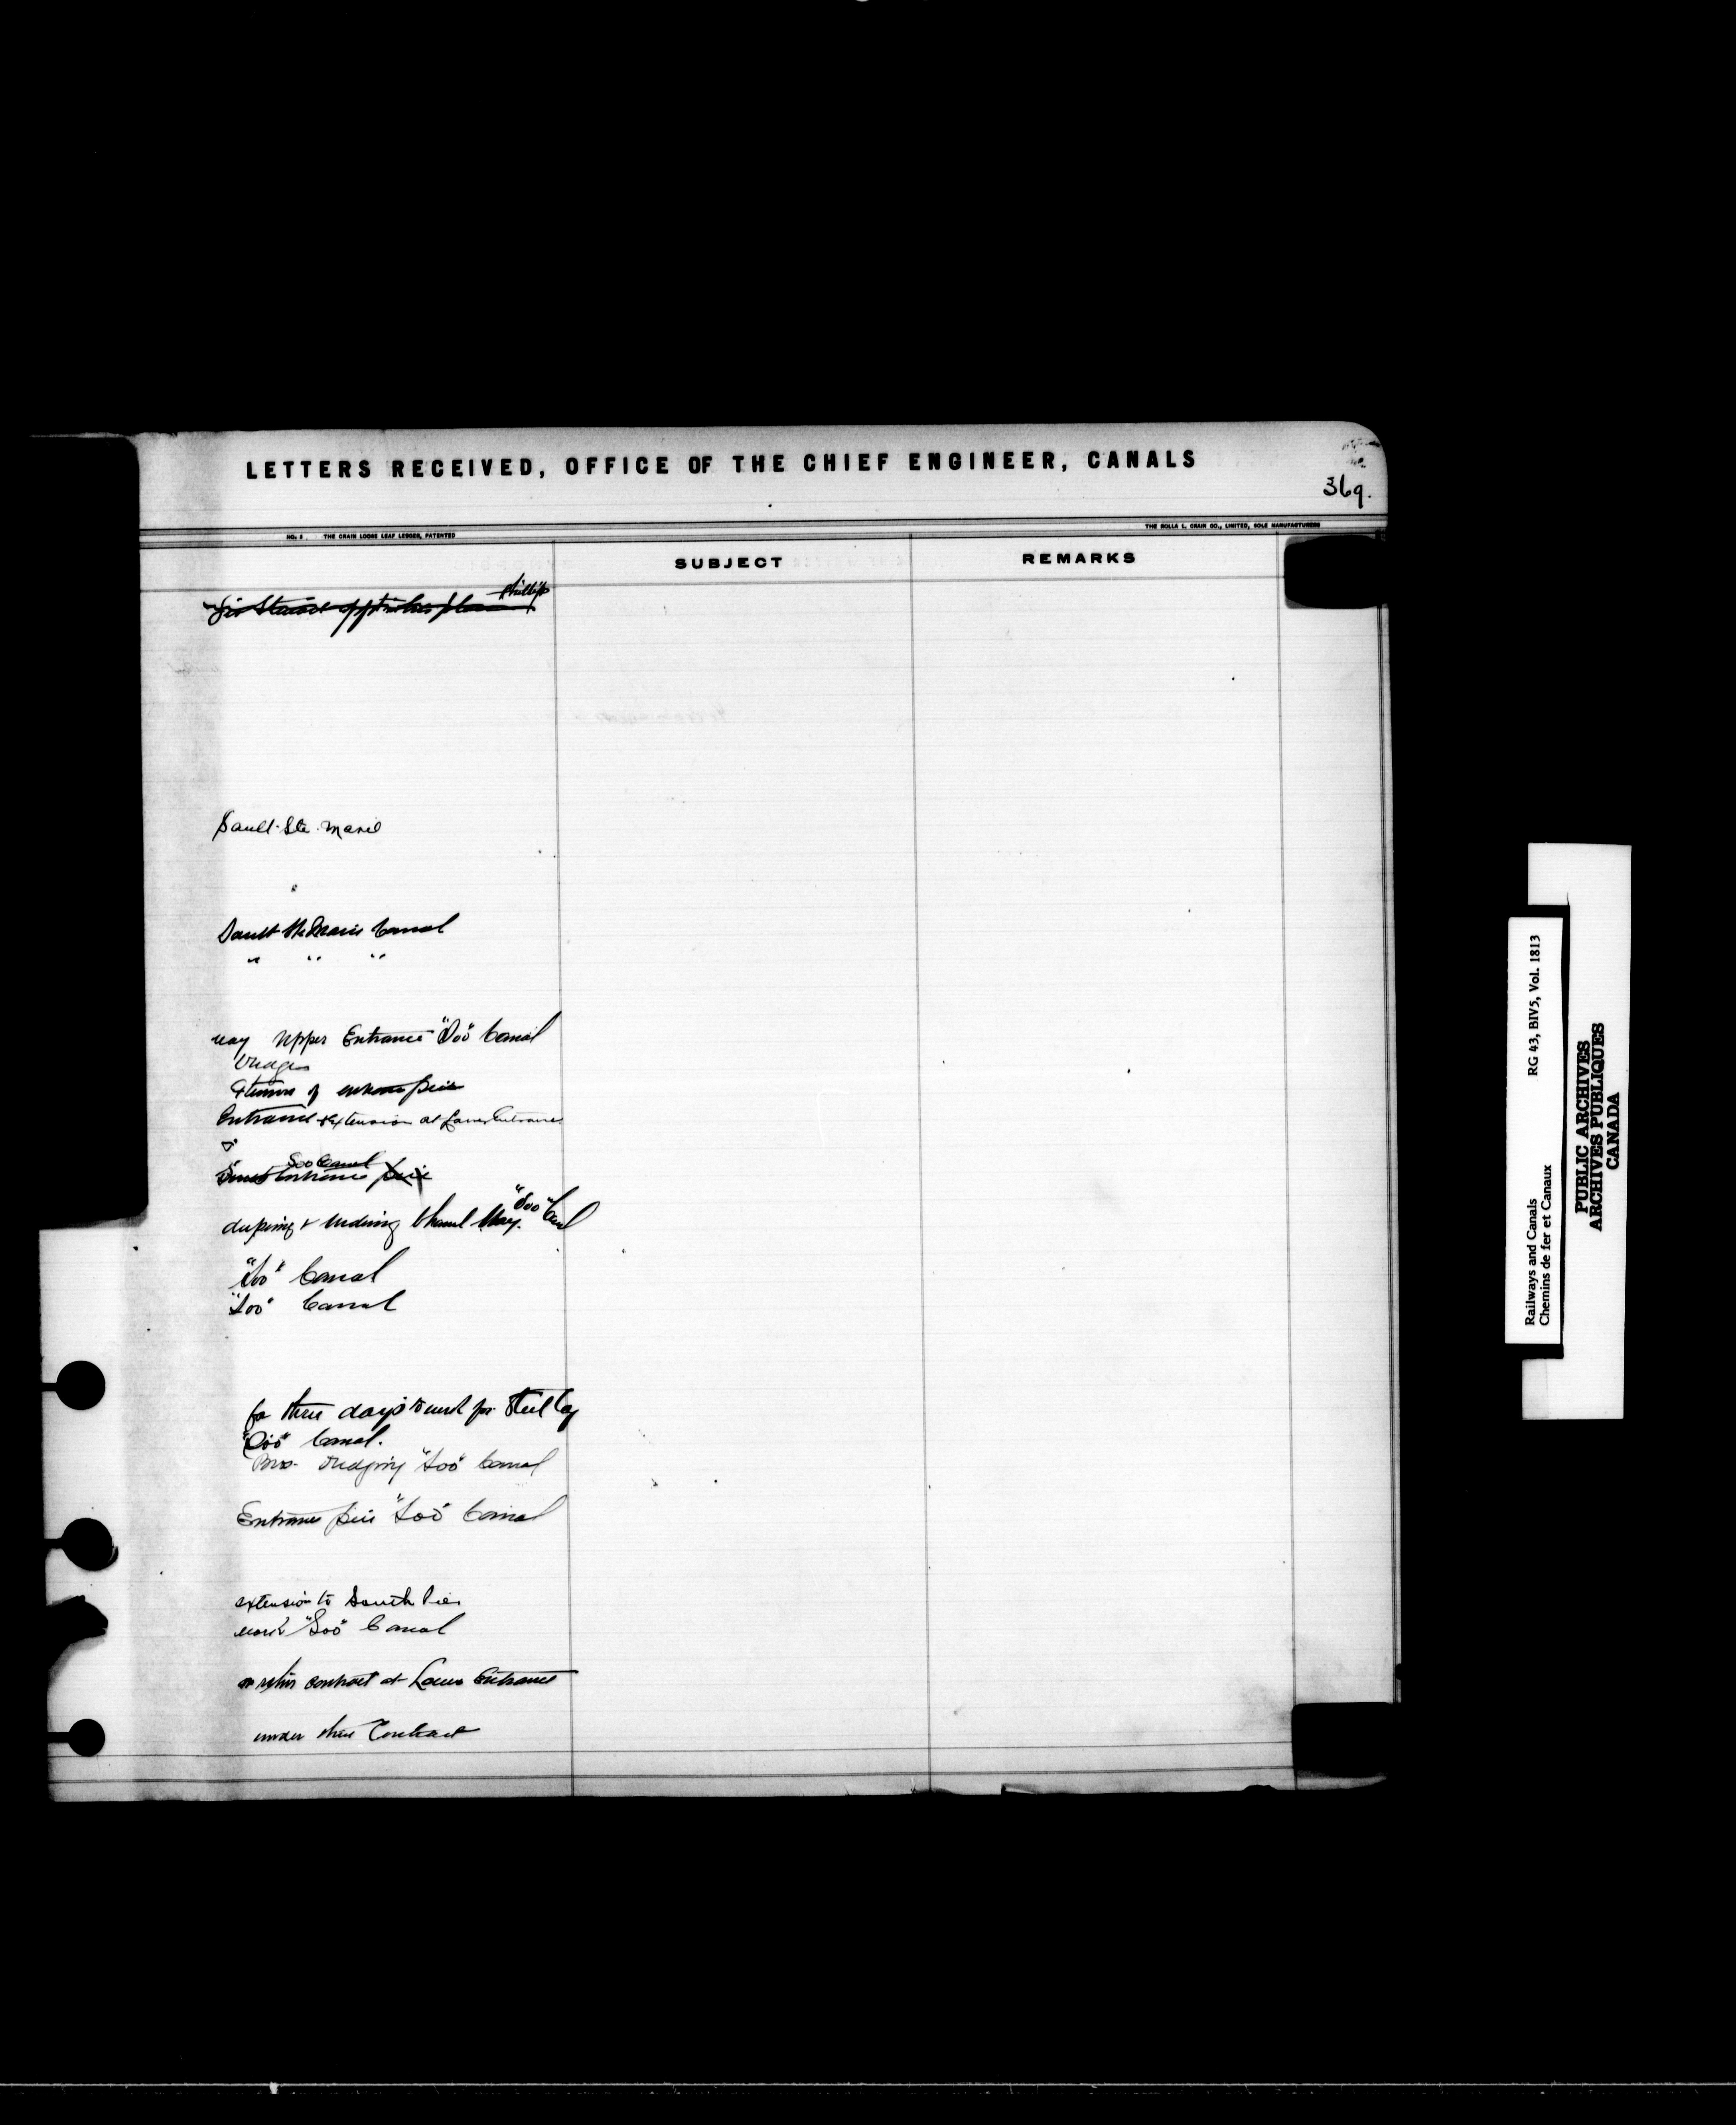 LETTERS RECEIVED, OFFICE OF THE CHIEF ENGINEER, CANALS
369.
NO. 2 THE CRAIN LOOSE LEAF LEDGER, PATENTED
THE ROLLA L. CRAIN CO., LIMITED, SOLE MANUFACTURERS
SUBJECT
REMARKS
Phillips
Geo Stewart
Sault. Ste. Marie
"
Sault Ste Marie Canal
" " "
way Upper Entrance "Soo" Canal
of entrance pier
Entrance extension at Lower Entrance
Soo Canal
Entrance pier
deepening & widening Channel Way. "Soo" Canal
"Soo" Canal
"Soo" Canal
for three days work for Steel Coy
"Soo" Canal.
Bros. dredging "Soo" Canal
Entrance pier "Soo" Canal
extension to South Pier
work "Soo" Canal
contract at Lower Entrance
under their Contract
Railways and Canals
Chemins de fer et Canaux
RG 43, BIV5, Vol. 1813
PUBLIC ARCHIVES
ARCHIVES PUBLIQUES
CANADA